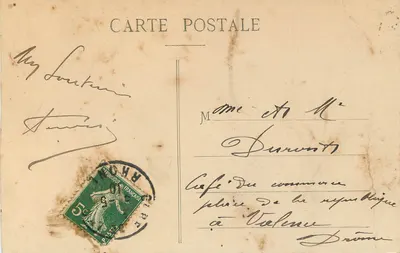 CARTE POSTALE
My Souvenir
Mme et Mr
Durand
Café du commerce
place de la republique
à Valence
Drôme
RHONE
5c